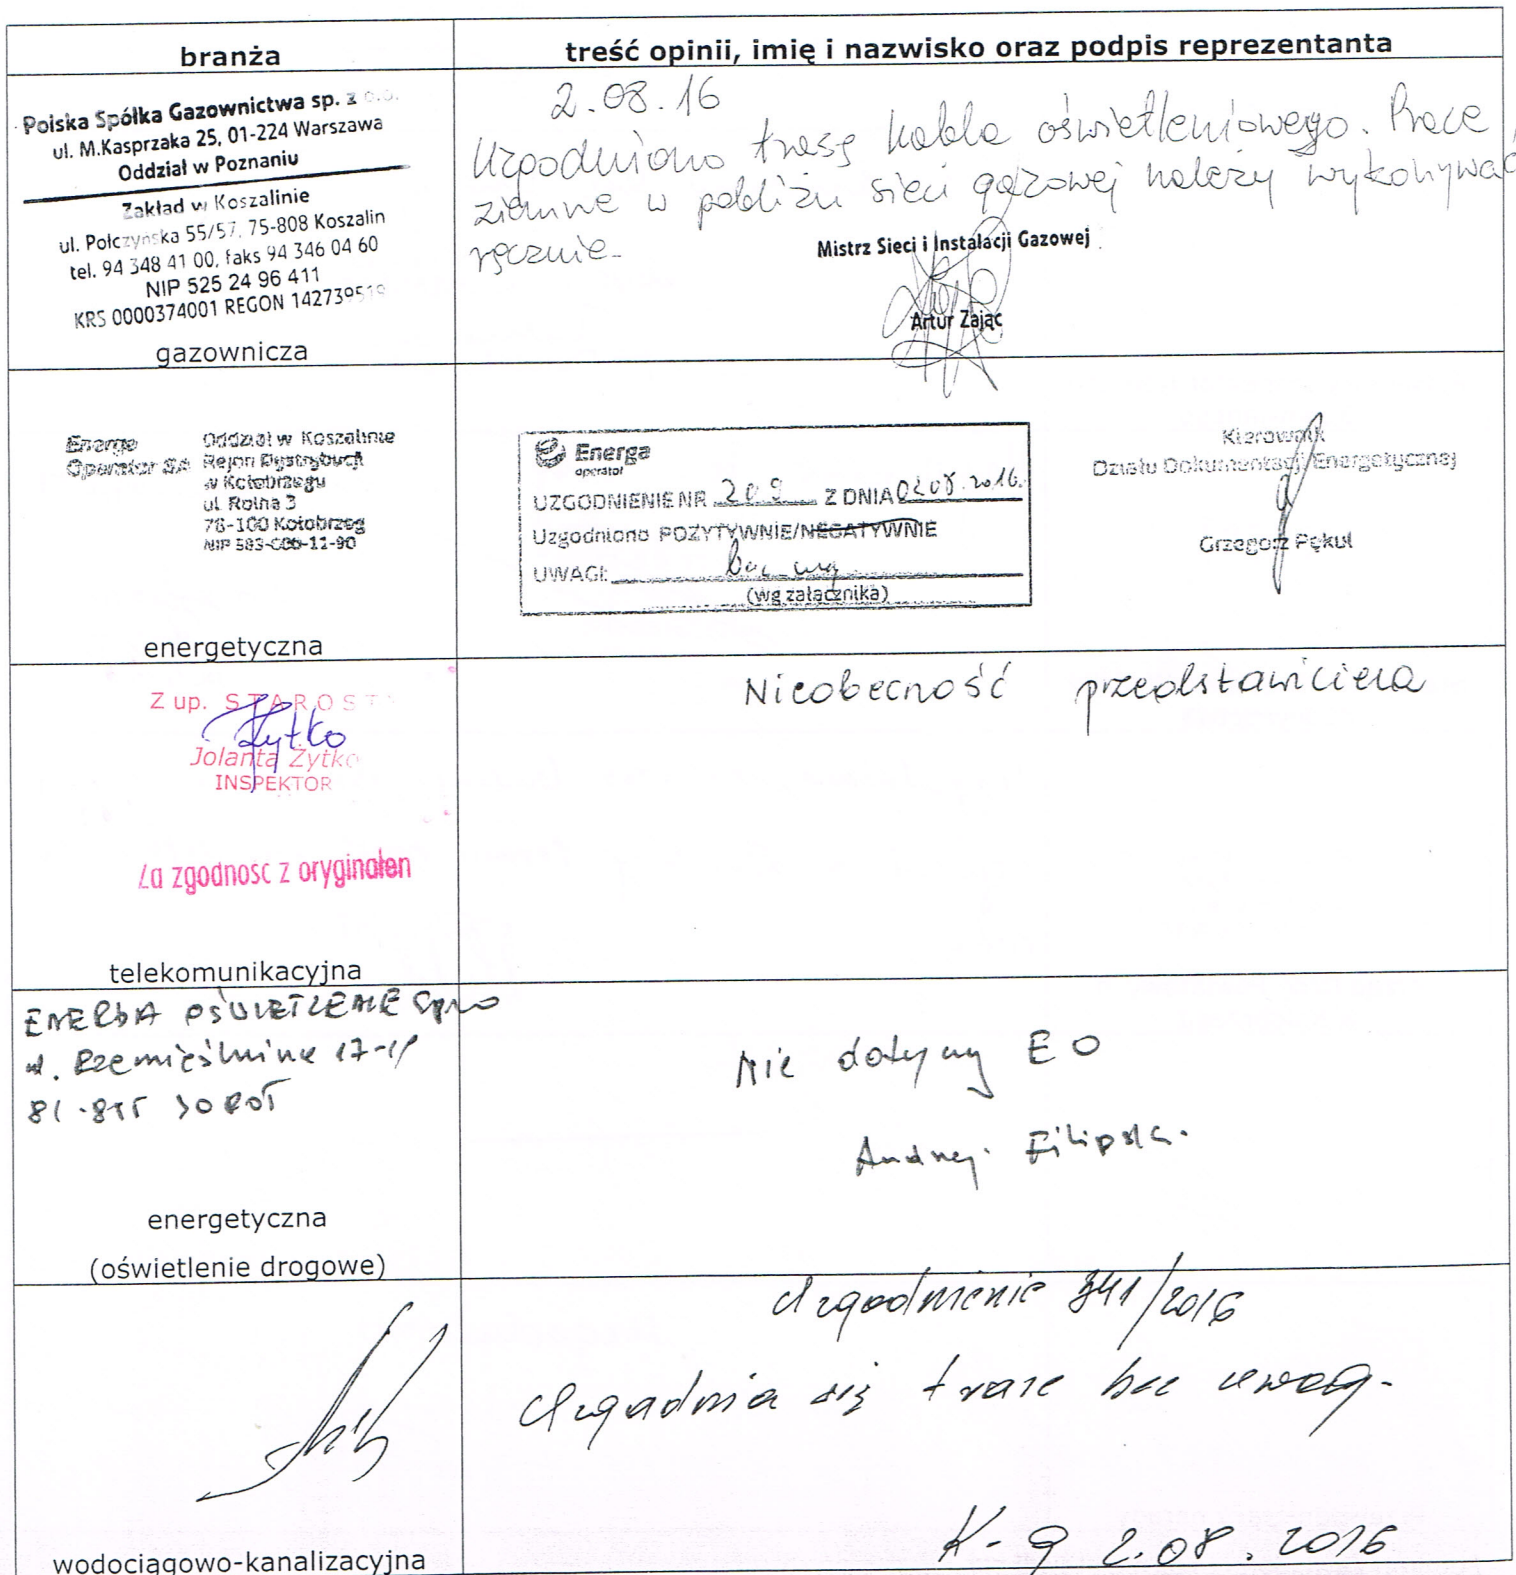 branża
treść opinii, imię i nazwisko oraz podpis reprezentanta
Polska Spółka Gazownictwa sp. z o.o.
ul. M.Kasprzaka 25, 01-224 Warszawa
Oddział w Poznaniu
Zakład w Koszalinie
ul. Połczyńska 55/57, 75-808 Koszalin
tel. 94 348 41 00, faks 94 346 04 60
NIP 525 24 96 411
KRS 0000374001 REGON 142739519
gazownicza
2.08.16
Uzgodniono trasę kabla oświetleniowego. Prace
ziemne w pobliżu sieci gazowej należy wykonywać
ręcznie.
Mistrz Sieci i Instalacji Gazowej
Artur Zając
Energa Oddział w Koszalinie
Operator SA Rejon Dystrybucji
w Kołobrzegu
ul. Rolna 3
78-100 Kołobrzeg
NIP 583-000-11-90
energetyczna
Energa
operator
UZGODNIENIE NR 209 Z DNIA 02.08.2016.
Uzgodniono POZYTYWNIE/NEGATYWNIE
UWAGI: bez uwag
(wg załącznika)
Kierownik
Działu Dokumentacji Energetycznej
Grzegorz Pękul
Z up. STAROSTY
Żytko
Jolanta Żytko
INSPEKTOR
Za zgodnosc z oryginałen
telekomunikacyjna
Nieobecność przedstawiciela
ENERGA OŚWIETLENIE Sp. z o.o
ul. Rzemieślnicza 17-19
81-855 SOPOT
energetyczna
(oświetlenie drogowe)
Nie dotyczy EO
Andrzej Filipski
wodociągowo-kanalizacyjna
Uzgodnienie 341/2016
Uzgadnia się trasę bez uwag.
K-g 2.08.2016